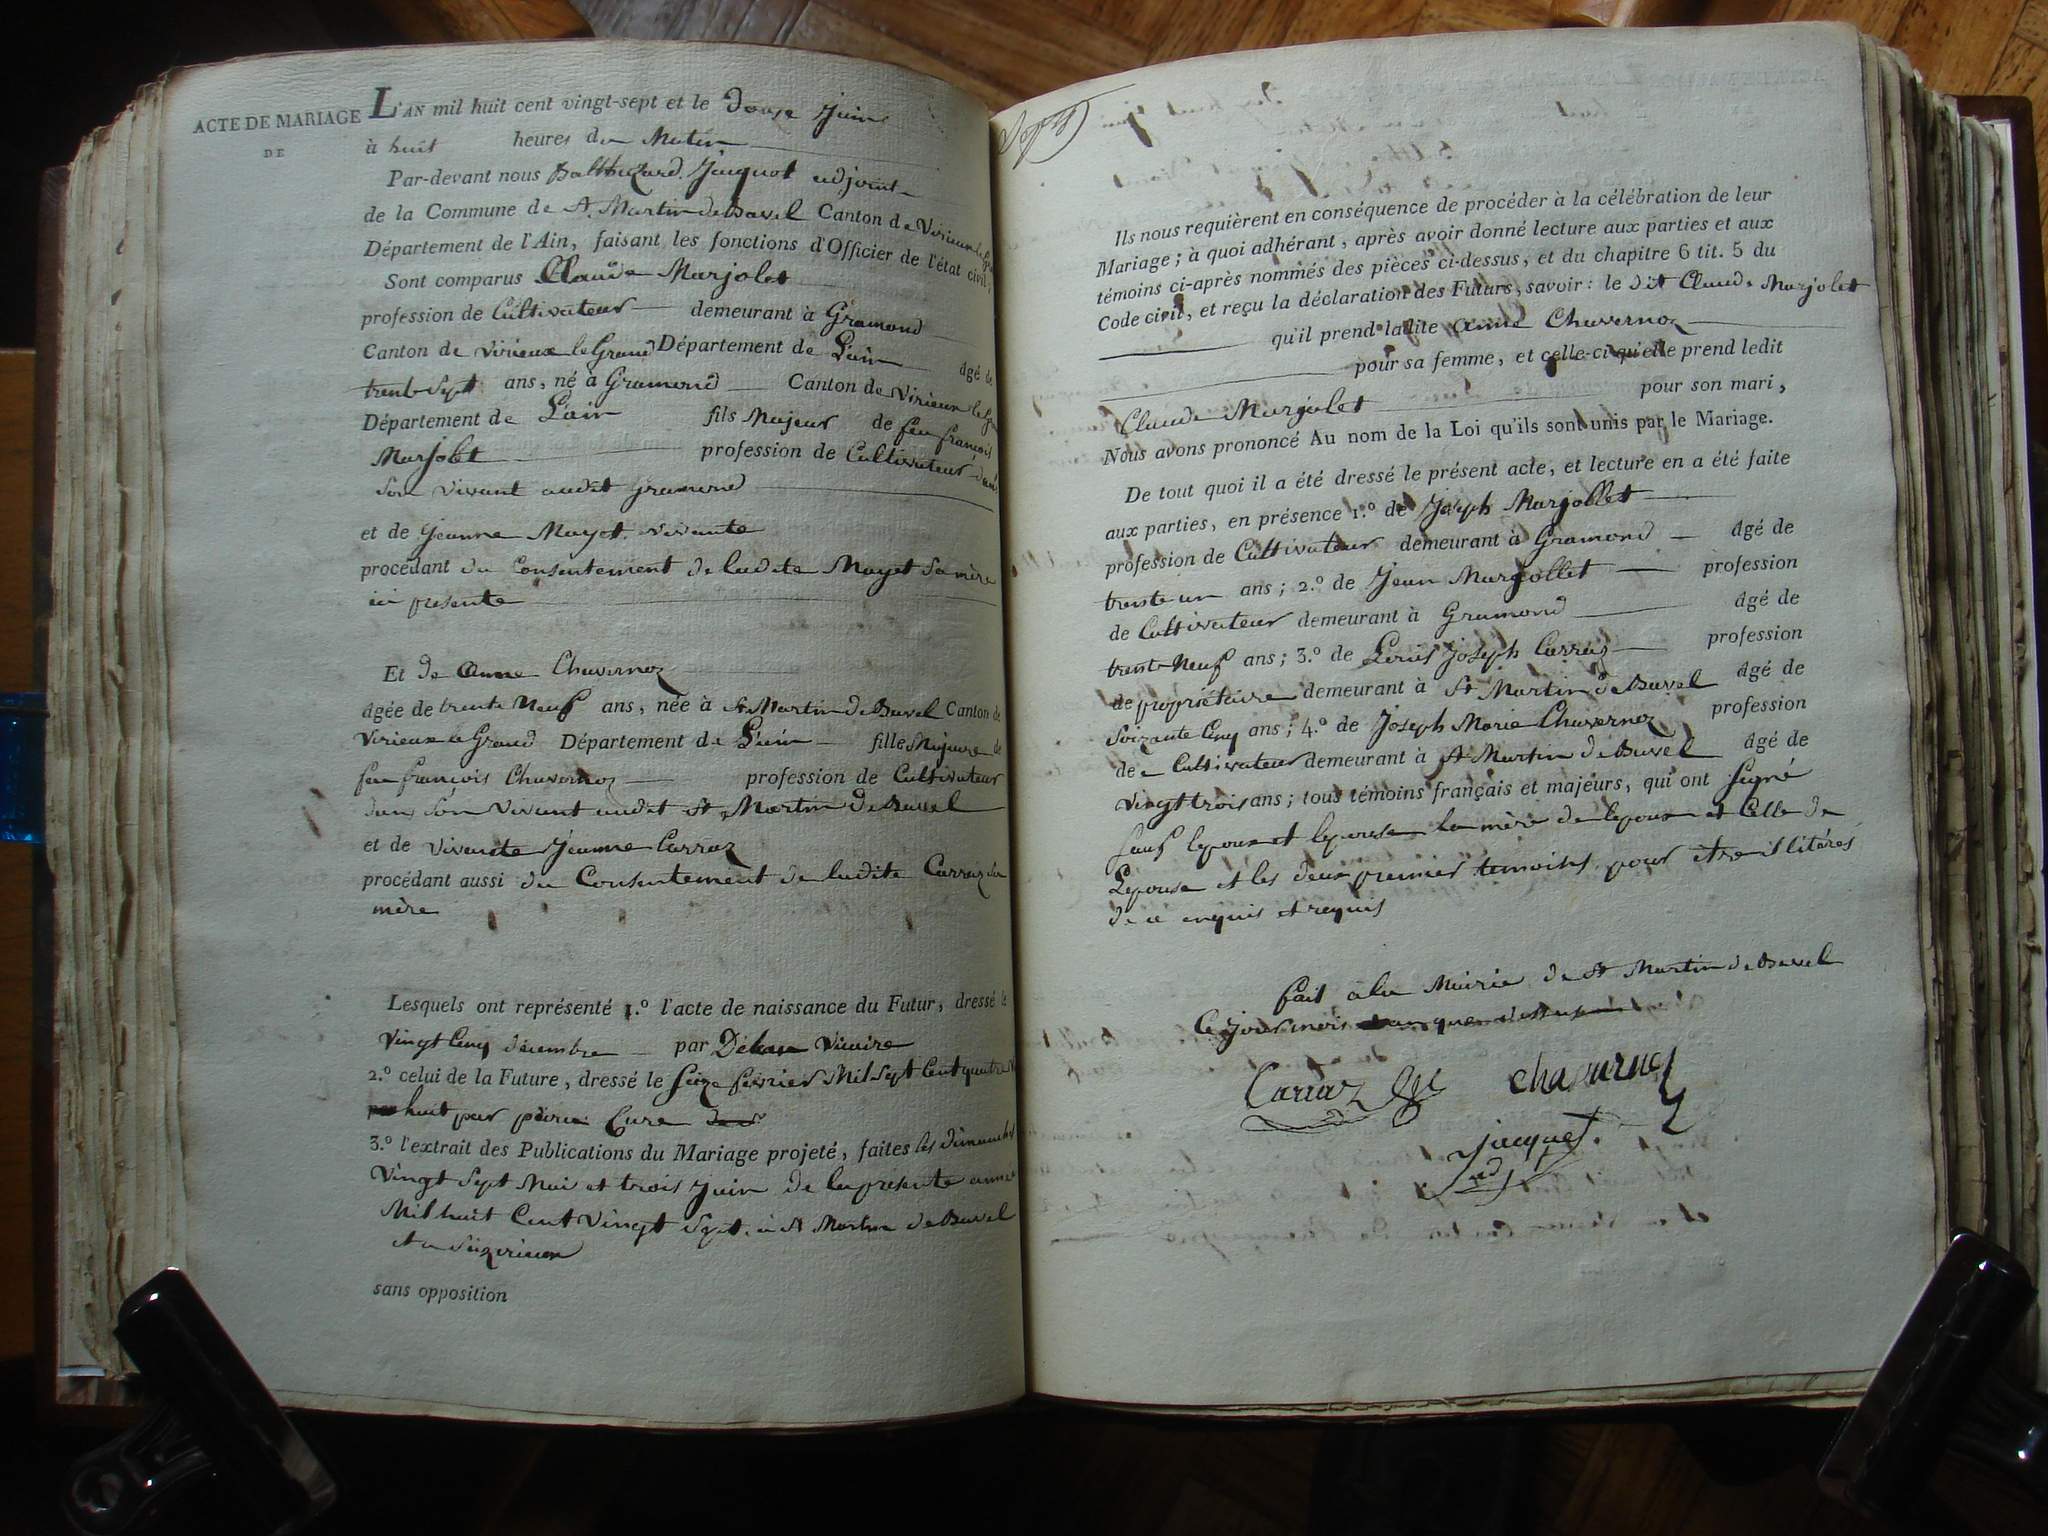 ACTE DE MARIAGE
DE
L'AN mil huit cent vingt-sept et le douze Juin
à huit heures du Matin
Par-devant nous Balthazard Jacquot adjoint
de la Commune de St. Martin de Bavel Canton de Virieux le Grand
Département de l'Ain, faisant les fonctions d'Officier de l'état civil,
Sont comparus Claude Marjolet
profession de Cultivateur demeurant à Gramond
Canton de Virieux le Grand Département de L'ain agé de
trente sept ans, né à Gramond Canton de Virieux le
Département de L'ain fils Majeur de feu françois
Marjolet profession de Cultivateur dans
son vivant audit Gramond
et de Jeanne Mayet vivante
procédant du Consentement de ladite Mayet sa mère
ici presente
Et de Anne Chavernoz
agée de trente Neuf ans, née à St Martin de Bavel Canton de
Virieux le Grand Département de L'ain fille Majeure de
feu françois Chavernoz profession de Cultivateur
dans son vivant audit St Martin de Bavel
et de vivante Jeanne Carraz
procédant aussi du Consentement de ladite Carraz sa
mère
Lesquels ont représenté 1.º l'acte de naissance du Futur, dressé le
Vingt Cinq décembre par Vicaire
2.º celui de la Future, dressé le Seize fevrier Mil Sept Cent quatre
huit par Cure
3.º l'extrait des Publications du Mariage projeté, faites les dimanches
Vingt Sept Mai et trois Juin de la présente année
Mil huit Cent Vingt Sept. à St Martin de Bavel
et a
sans opposition
Ils nous requièrent en conséquence de procéder à la célébration de leur
Mariage; à quoi adhérant, après avoir donné lecture aux parties et aux
témoins ci-après nommés des pièces ci-dessus, et du chapitre 6 tit. 5 du
Code civil, et reçu la déclaration des Futurs, savoir: le dit Claude Marjolet
qu'il prend ladite anne Chavernoz
pour sa femme, et celle-ci qu'elle prend ledit
Claude Marjolet pour son mari,
Nous avons prononcé Au nom de la Loi qu'ils sont unis par le Mariage.
De tout quoi il a été dressé le présent acte, et lecture en a été faite
aux parties, en présence 1.º de Joseph Marjollet
profession de Cultivateur demeurant à Gramond agé de
trente un ans; 2.º de Jean Marjollet profession
de Cultivateur demeurant à Gramond agé de
trente Neuf ans; 3.º de Louis Joseph Carraz profession
de propriétaire demeurant à St Martin de Bavel agé de
Soixante Cinq ans; 4.º de Joseph Marie Chavernoz profession
de Cultivateur demeurant à St Martin de Bavel agé de
Vingt trois ans; tous témoins français et majeurs, qui ont signé
sauf lepoux et lepouse la mère de lepoux et Celle de
Lepouse et les deux premier temoins pour être illitéres
de ce enquis et requis
fait a la Mairie de St Martin de Bavel
Ce jour mois an que dessus
Carraz Chavarnoz
Jacquot
adj